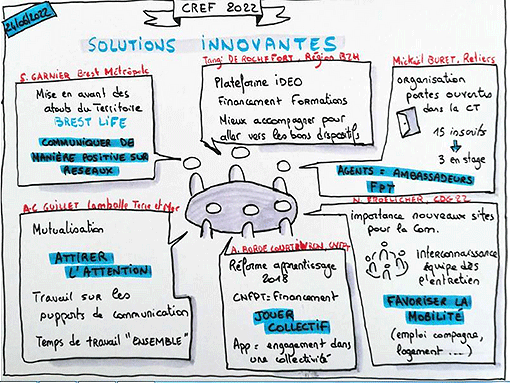 CREF 2022
24/06/2022
SOLUTIONS INNOVANTES
S. GARNIER Brest Métropole
Mise en avant des
atouts du Territoire
BREST LIFE
COMMUNIQUER DE
MANIÈRE POSITIVE SUR
RESEAUX
Tangi DE ROCHEFORT, Région BZH
Plateforme iDEO
Financement Formations
Mieux accompagner pour
aller vers les bons dispositifs
Mickaël BURET, Reliers
organisation
portes ouvertes
dans la CT
15 inscrits
3 en stage
AGENTS = AMBASSADEURS
FPT
A-C GUILLET Lamballe Terre et Mer
Mutualisation
ATTIRER
L'ATTENTION
Travail sur les
supports de communication
Temps de travail "ENSEMBLE"
A. BORDE
Réforme apprentissage
2018
CNFPT = Financement
JOUER
COLLECTIF
App = engagement dans
une collectivité
N. FROELICHER, CDG 22
importance nouveaux sites
pour la Com.
Interconnaissance
équipe dès
l'entretien
FAVORISER LA
MOBILITÉ
(emploi compagne,
logement ....)